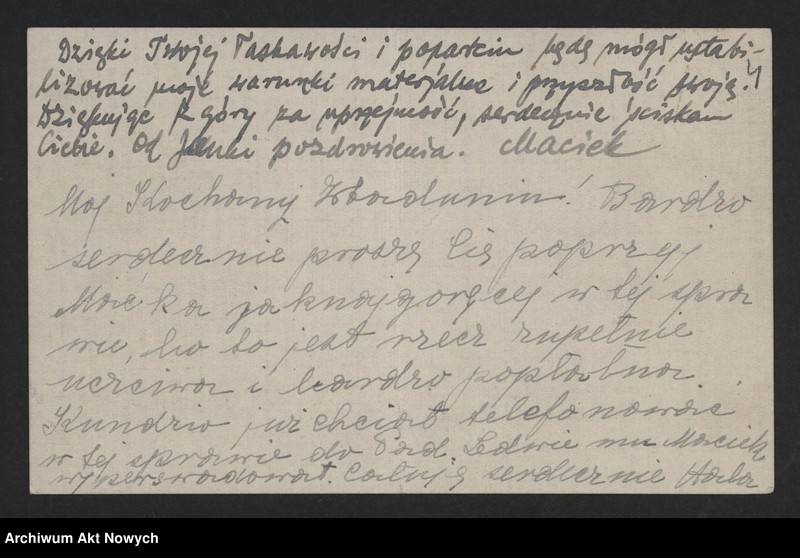 Dzięki Twojej łaskawości i poparciu będę mógł ustabi-
lizować moje warunki materjalne i przyszłość swoją.
Dziękując z góry za uprzejmość, serdecznie ściskam
Ciebie. Od Janki pozdrowienia. Maciek
Mój Kochany Właduniu! Bardzo
serdecznie proszę Cię poprzej
Maćka jaknajgoręcej w tej spra
wie, bo to jest rzecz zupełnie
uczciwa i bardzo popłatna
Kundzio już chciał telefonować
w tej sprawie do Pad. Ledwie mu Maciek
wyperswadował. Całuję serdecznie Hala
Archiwum Akt Nowych